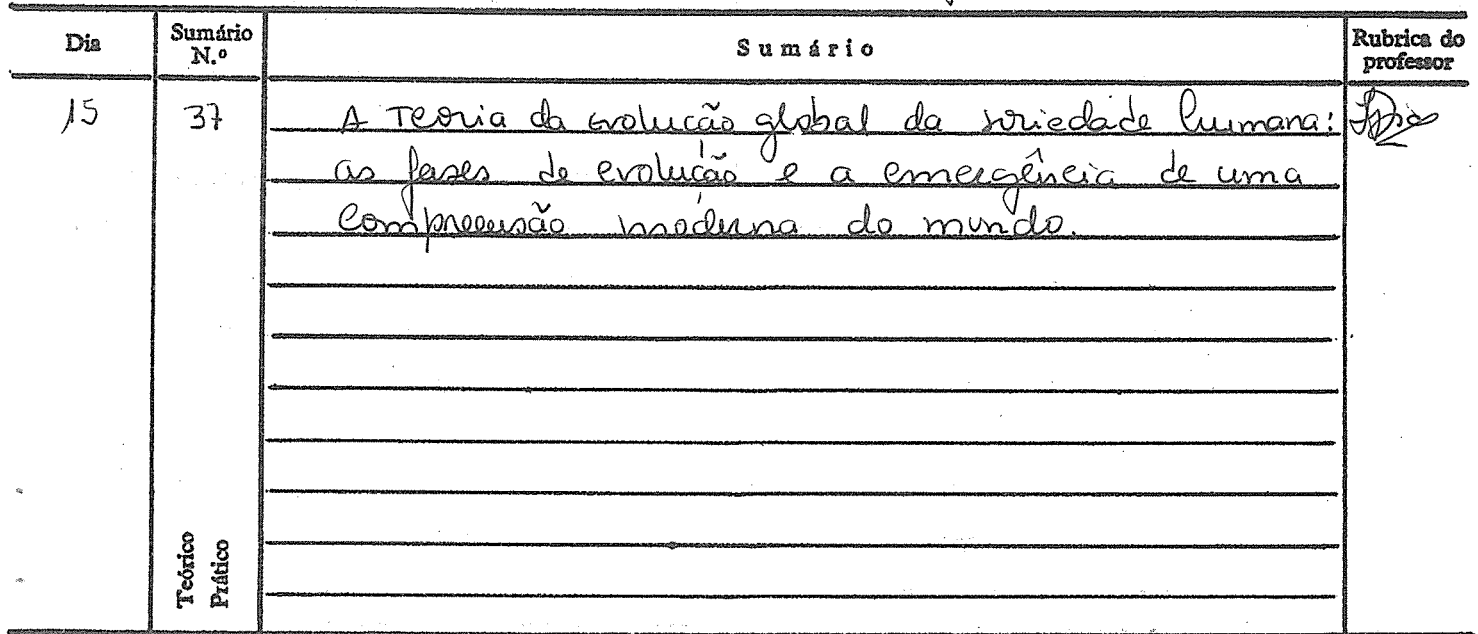 Dia
Sumário N.º
Sumário
Rubrica do professor
15
37
A Teoria da evolução global da sociedade humana:
as fases de evolução e a emergência de uma
compreensão moderna do mundo.
Teórico
Prático